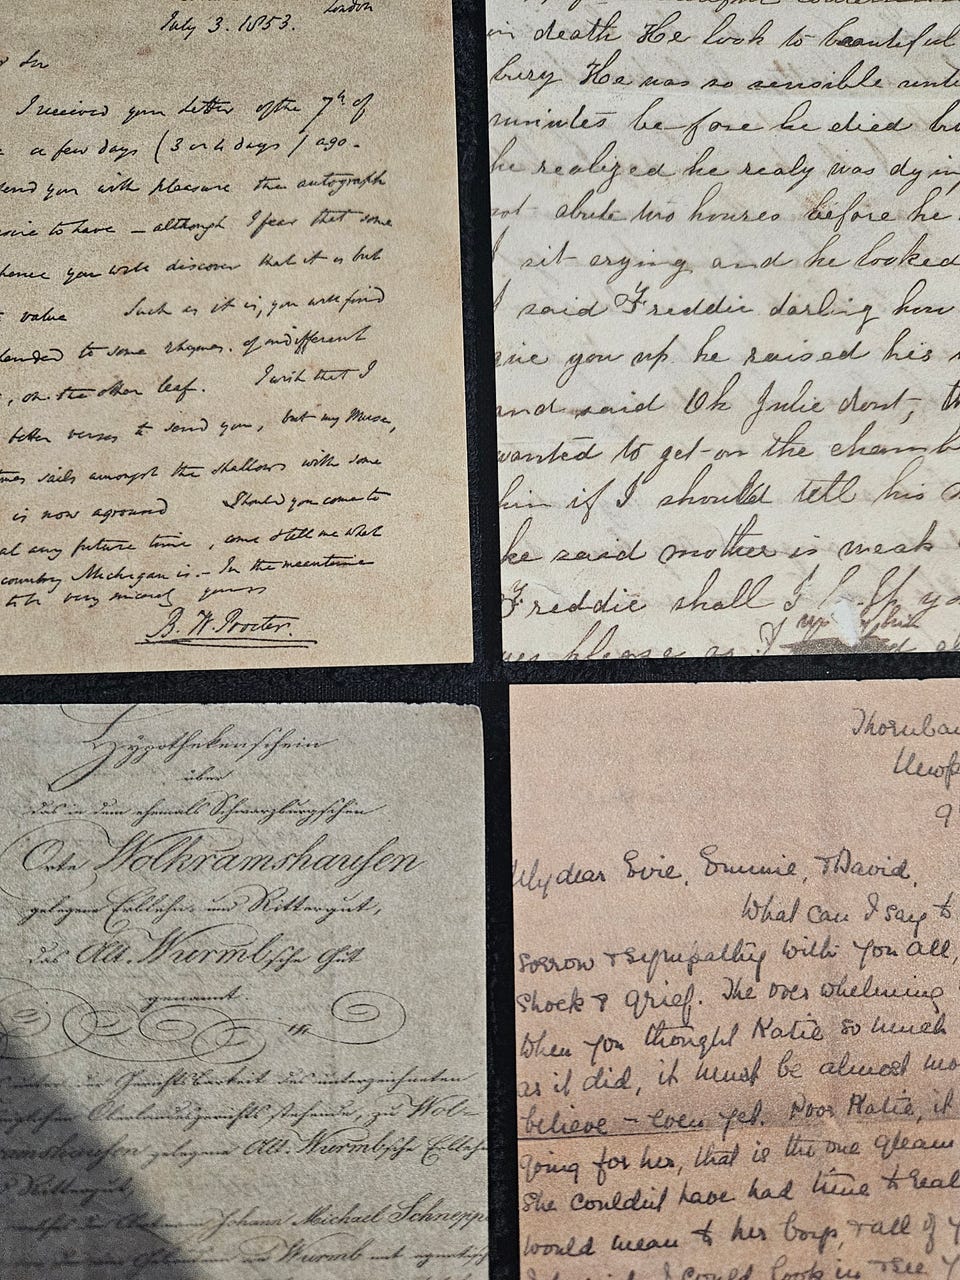 London
July 3. 1853.
Sir
I received your letter of the 7th of
a few days (3 or 4 days) ago.
send you with pleasure the autograph
desire to have – although I fear that some
hence you will discover that it is but
value Such as it is, you will find
to some rhymes, of indifferent
, on the other leaf. I wish that I
better verses to send you, but my Muse,
sails amongst the shallows with some
is now aground Should you come to
at any future time, come & tell me what
country Michigan is – In the meantime
to be very sincerely yours
B. W. Procter.
in death He look so beautiful
bury He was so sensible
minutes before he died
he realized he realy was dying
not abute two houres before he
I sit crying and he looked
I said Freddie darling how
give you up he raised his
and said Oh Julie dont,
wanted to get on the
him if I should tell his
he said mother is weak
Freddie shall I
please
Hypothekenschein
über
das in dem ehemals Schwarzburgschen
Orte Wolkramshausen
gelegene Erblehn- und Rittergut,
das Alt. Wurmbsche Gut
genannt.
Gerichtbarkeit des unterzeichneten
Oberlandesgerichts stehende, zu Wol-
kramshausen gelegene Alt. Wurmbsche Erblehn
Rittergut,
Johann Michael Schnepp
Wurmb mit
Thornba
Newp
9
My dear Evie, Emmie, & David,
What can I say to
sorrow & sympathy with you all,
shock & grief. The over whelming
when you thought Katie so much
as it did, it must be almost
believe – even yet. Poor Katie, it
going for her, that is the one gleam
she couldn't have had time to real
would mean to her boys, & all of
I could look in & see